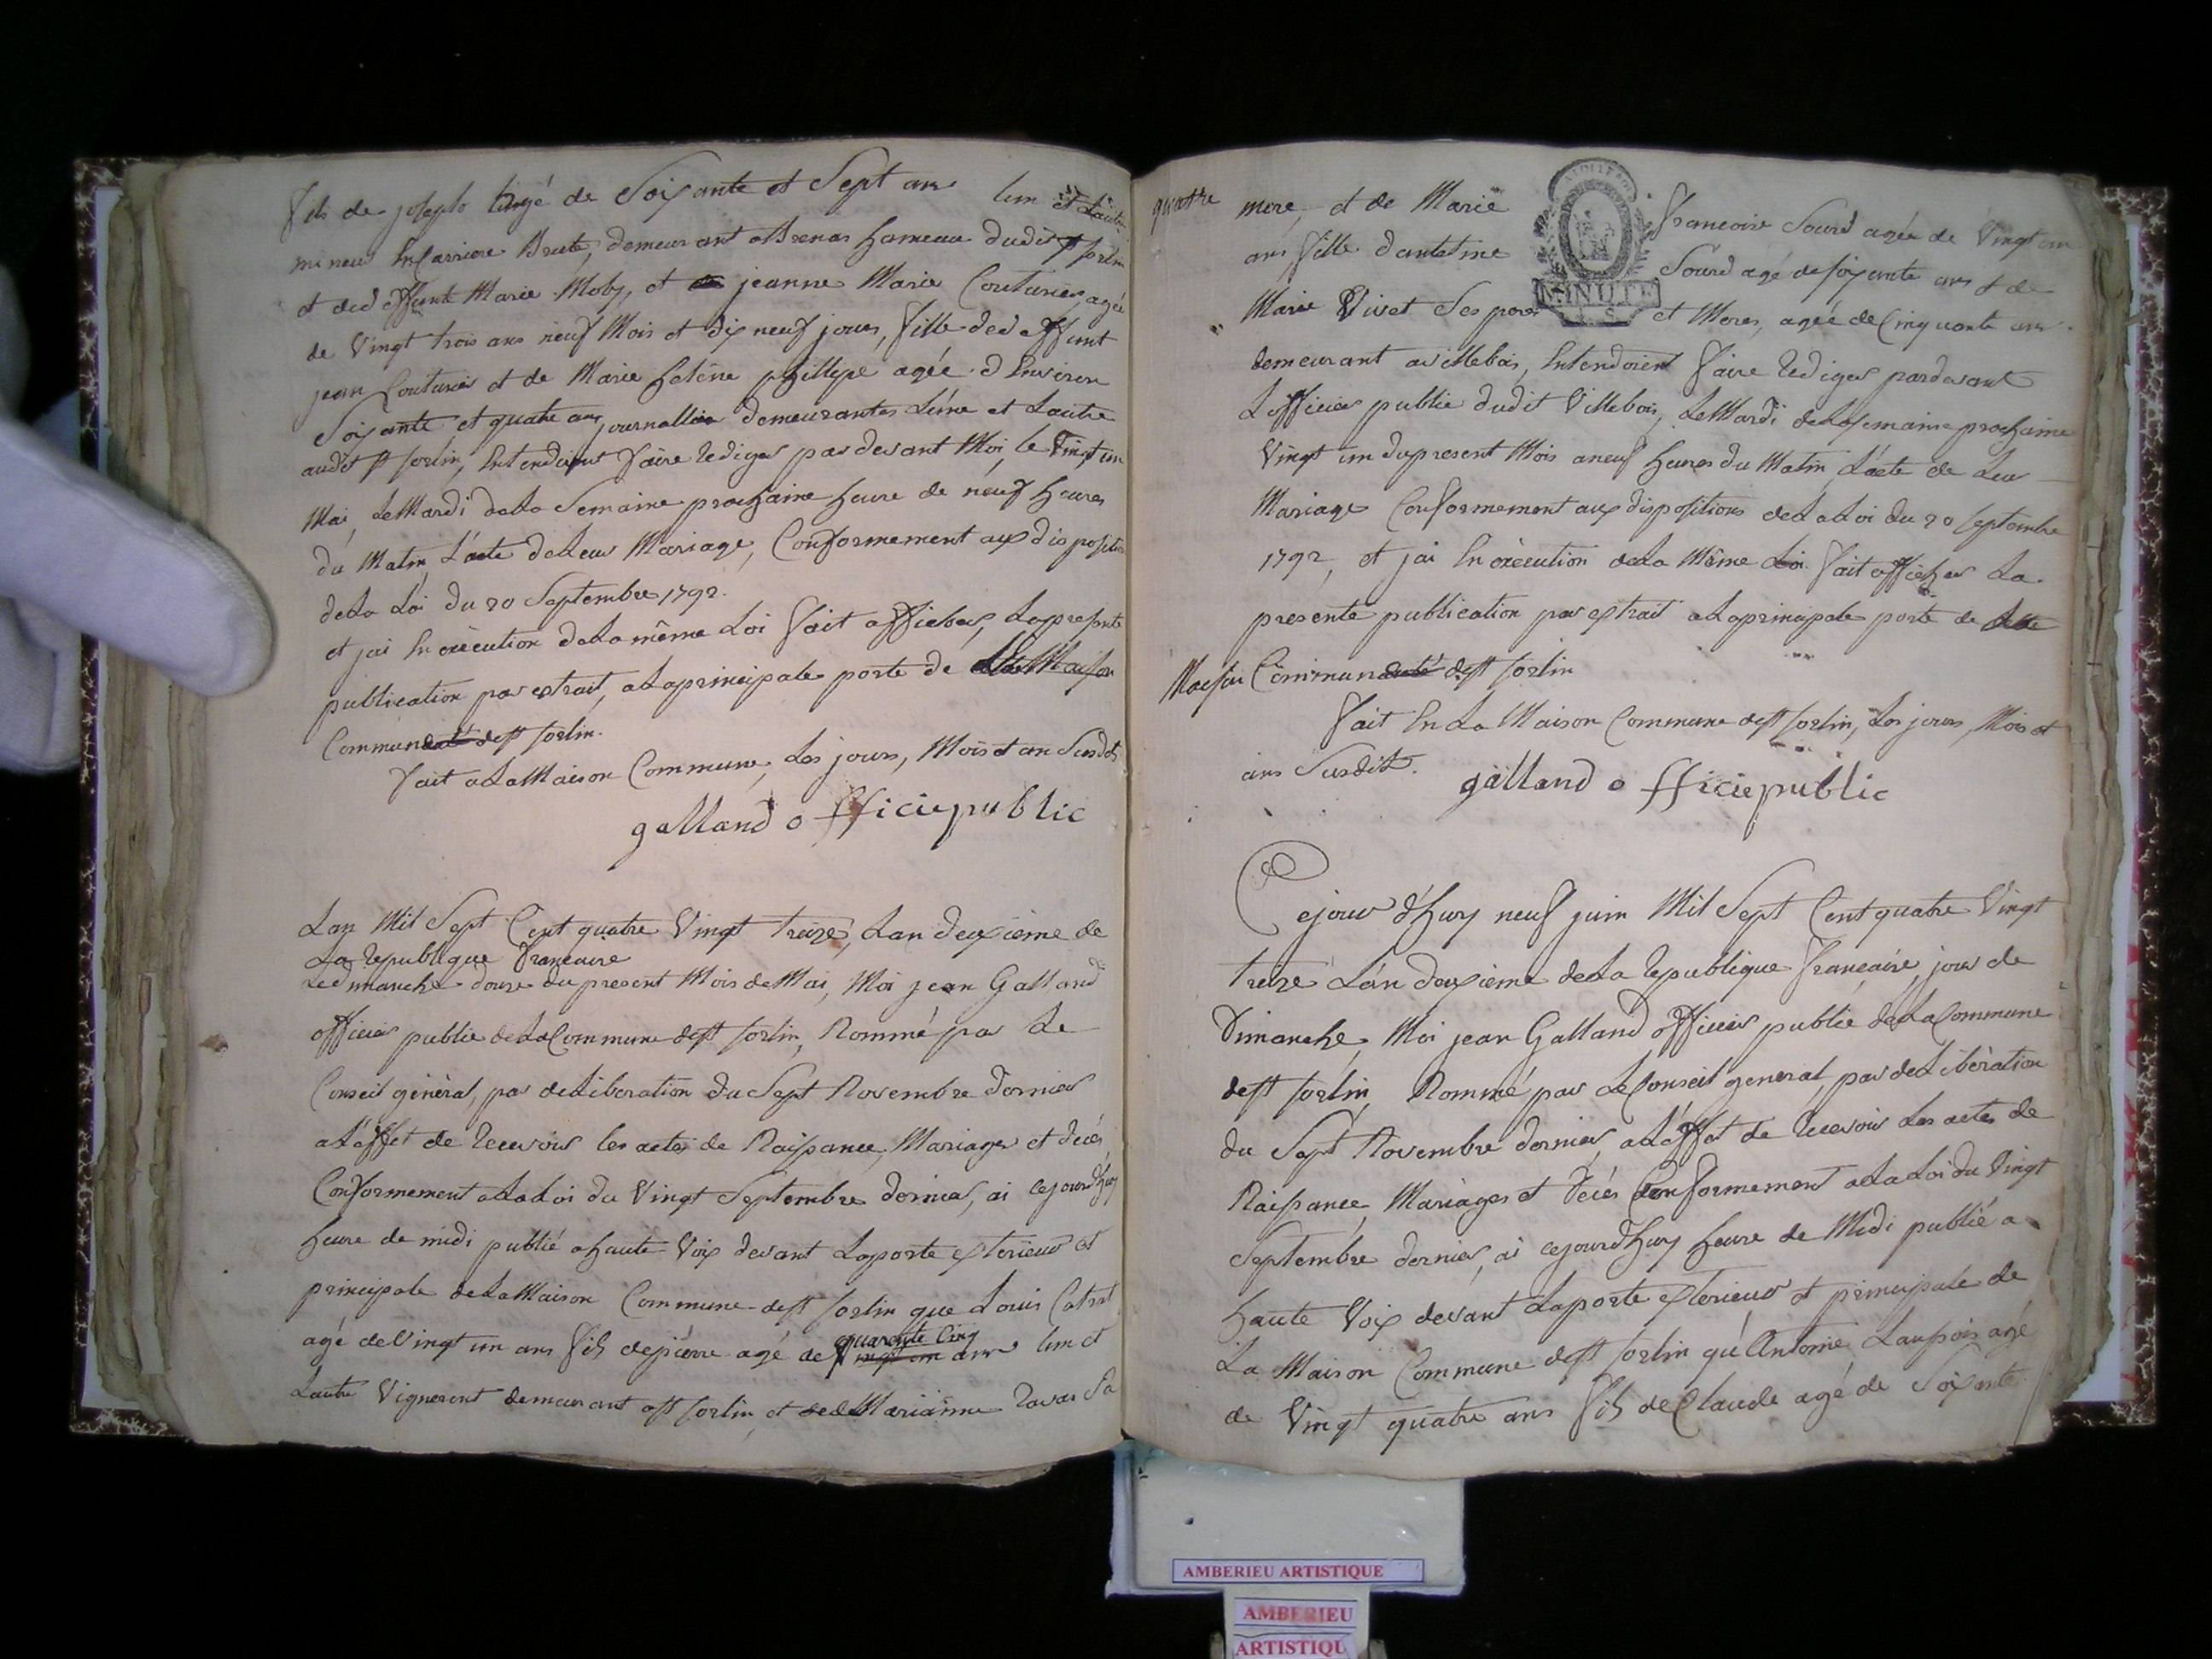 fils de joseph agé de Soixante et Sept ans lun et Lautre
mineur En Carriere Brute, demeurant a Brenas hameau dudit St Sorlin
et de deffunte Marie Moby, et jeanne Marie Couturier, agée
de Vingt trois ans neuf Mois et dix neuf jours, fille de deffunt
jean Couturier et de Marie helène phillipe agée d'Environ
Soixante et quatre ans journallière demeurantes L'une et Lautre
audit St Sorlin, Entendoient faire rediger par devant Moi, le Vingt un
Mai, Le Mardi de La Semaine prochaine heure de neuf heures
du Matin L'acte de Leur Mariage, Conformement aux dispositions
de La Loi du 20 Septembre 1792.
et jai En exécution de La même Loi fait afficher, La presente
publication par extrait, a La principale porte de La Maison
Commune de St Sorlin.
fait a La Maison Commune, Les jours, Mois et an Susdits
galland officie public
Lan Mil Sept Cent quatre Vingt treize, Lan deuxieme de
La Republique francaise
Le dimanche douze du present Mois de Mai, Moi jean Galland
officier public de La Commune de St Sorlin, Nommé par Le
Conseil général, par deLiberation du Sept Novembre dernier
a L'éffet de Recevoir les actes de Naissance, Mariages et décés
Conformement a La Loi du Vingt Septembre dernier, ai cejourdhuy
heure de midi publié a haute Voix devant La porte exterieur et
principale de La Maison Commune de St Sorlin que Louis Catrat
agé de Vingt un ans fils de pierre agé de quarante Cinq ans lun et
Lautre Vigneront demeurant a St Sorlin et de Marianne Ravas Sa
quatre
mere, et de Marie francoise Sourd agée de Vingt
ans fille d'antoine Sourd agé de soixante ans et de
Marie Vivet Ses peres et Meres, agée de Cinquante ans
MINUTE
demeurant a villebois, Entendoient faire rediger pardevant
L'officier public dudit Villebois, Le Mardi de La semaine prochaine
Vingt un du present Mois a neuf heures du Matin, L'acte de Leur
Mariage Conformement aux dispositions de La Loi du 20 septembre
1792, et jai En exécution de La Même Loi fait afficher La
presente publication par extrait a La principale porte de La
Maison Commune de St Sorlin
fait En La Maison Commune de St Sorlin, Les jours, Mois et
ans Susdits.
galland officie public
Cejour d'huy neuf juin Mil Sept Cent quatre Vingt
treize L'an deuxieme de La Republique francaise, jour de
Dimanche, Moi jean Galland officier public de La Commune
de St Sorlin, Nommé par Le Conseil general, par deLibération
du Sept Novembre dernier, a L'éffet de Recevoir Les actes de
Naissance, Mariages et décés Conformement a La Loi du Vingt
Septembre dernier, ai cejourdhuy heure de Midi publié a
haute Voix devant La porte exterieur et principale de
La Maison Commune de St Sorlin qu'Antoine Laupois agé
de Vingt quatre ans fils de Claude agé de Soixante
AMBERIEU ARTISTIQUE
AMBERIEU
ARTISTIQU